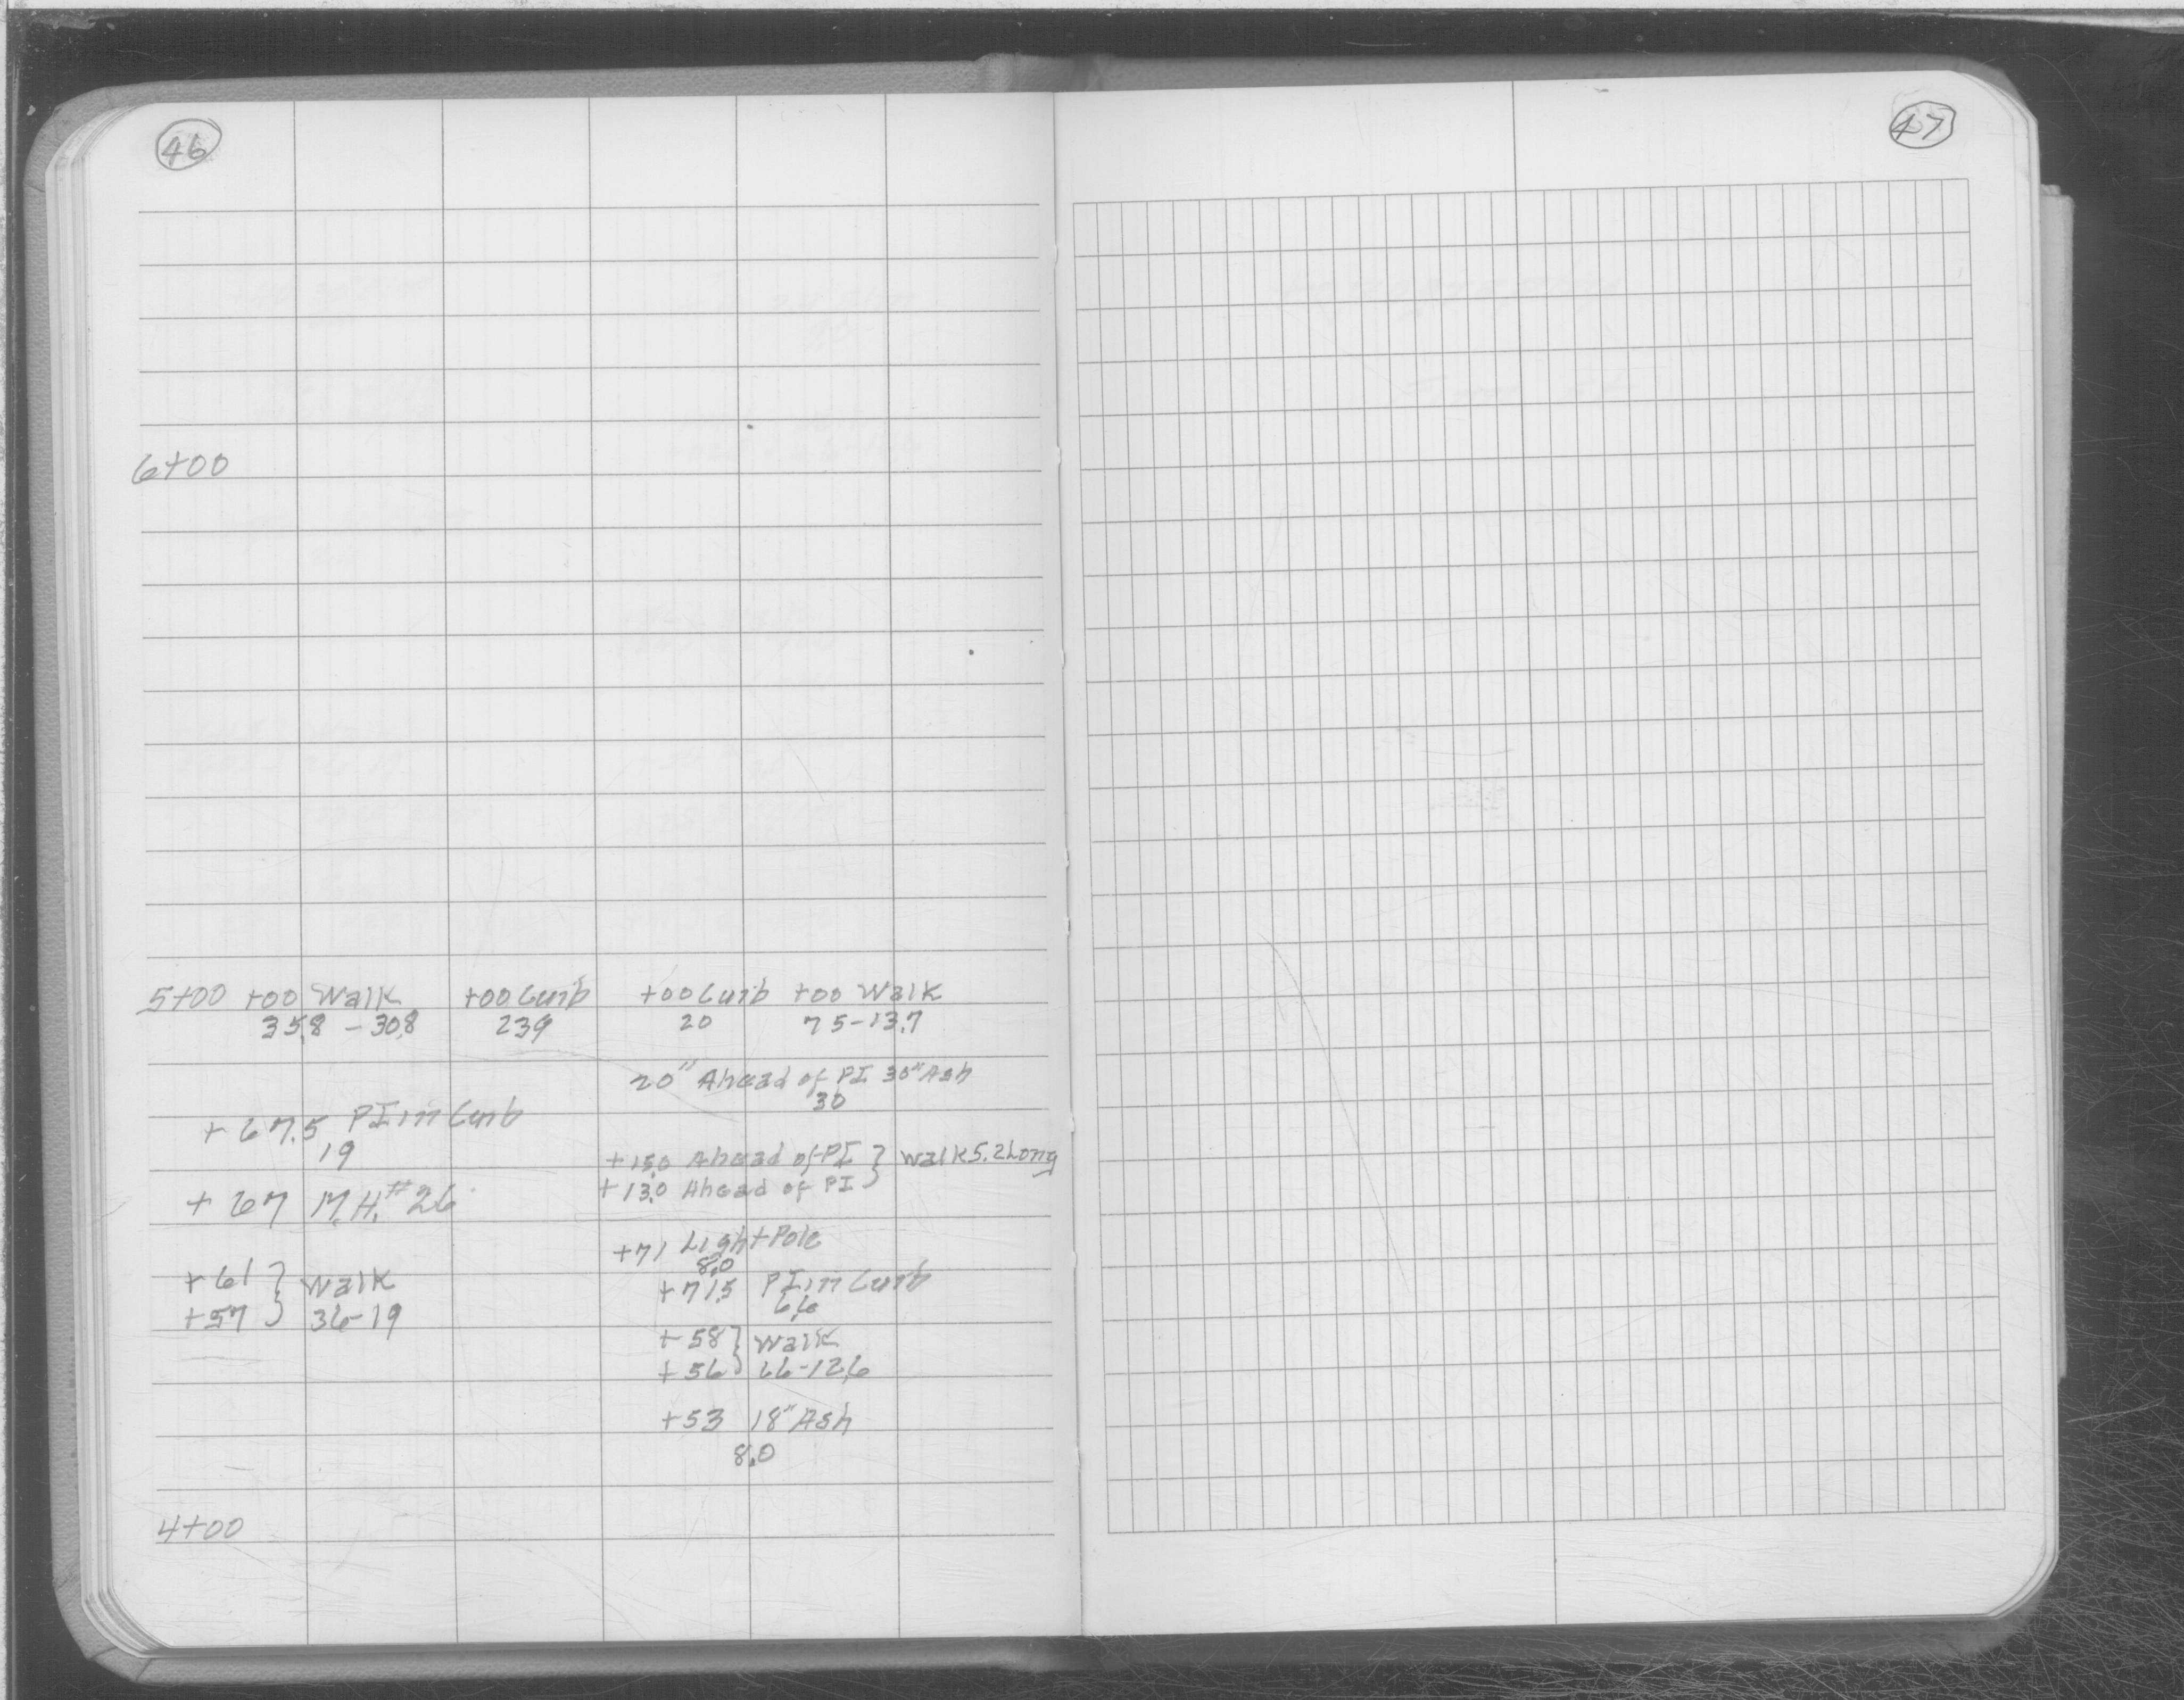 46
47
6+00
5+00 +00 Walk +00 Curb +00 Curb +00 Walk
35.8 - 30.8 23.9 20 7.5-13.7
20" Ahead of PI 30" Ash
30
+67.5 PI in Curb
19
+15.0 Ahead of PI } Walk 5.2 Long
+13.0 Ahead of PI
+67 M.H. #26
+71 Light Pole
8.0
+61 } Walk
+57 36-19
+71.5 PI in Curb
6.6
+58 } Walk
+56 6.6-12.6
+53 18" Ash
8.0
4+00